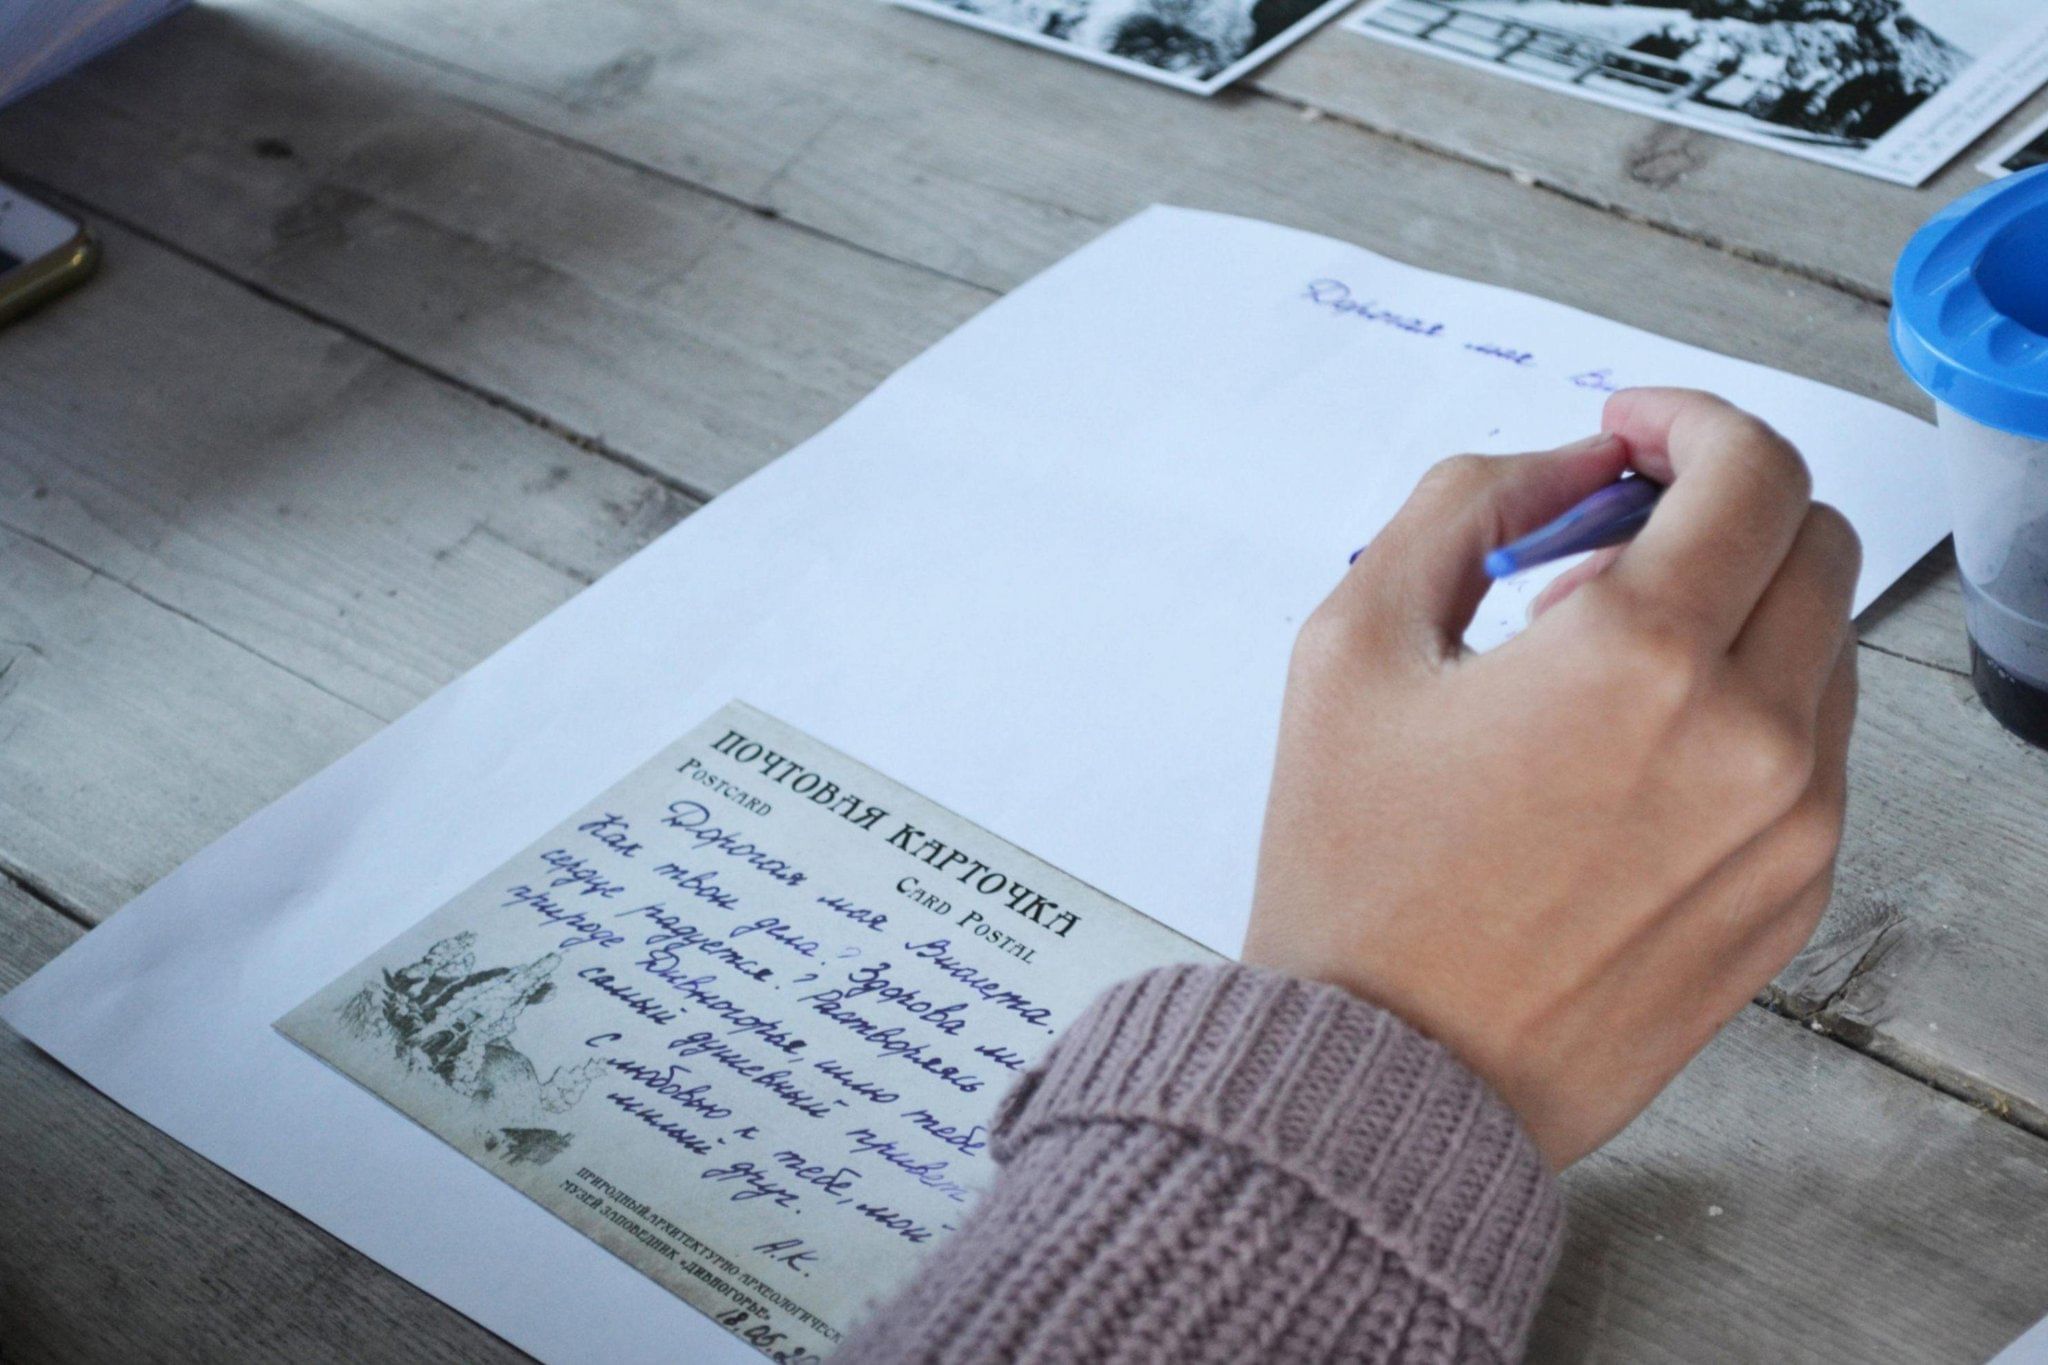 Дорогая моя
ПОЧТОВАЯ КАРТОЧКА
POSTCARD
CARD POSTAL
Дорогая моя Виолетта.
Как твои дела? Здорова ли
сердце радуется? Растворяясь
природе Дивногорья, шлю тебе
самый душевный привет
С любовью к тебе, мой
милый друг.
А.К.
ПРИРОДНЫЙ АРХИТЕКТУРНО-АРХЕОЛОГИЧЕСК
МУЗЕЙ ЗАПОВЕДНИК «ДИВНОГОРЬЕ»
18.05.20